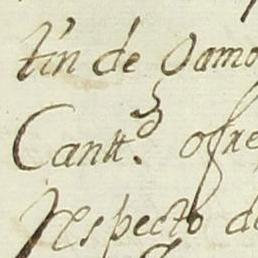 tin de Gamo
Cantt.ᵈ ofre
respecto de